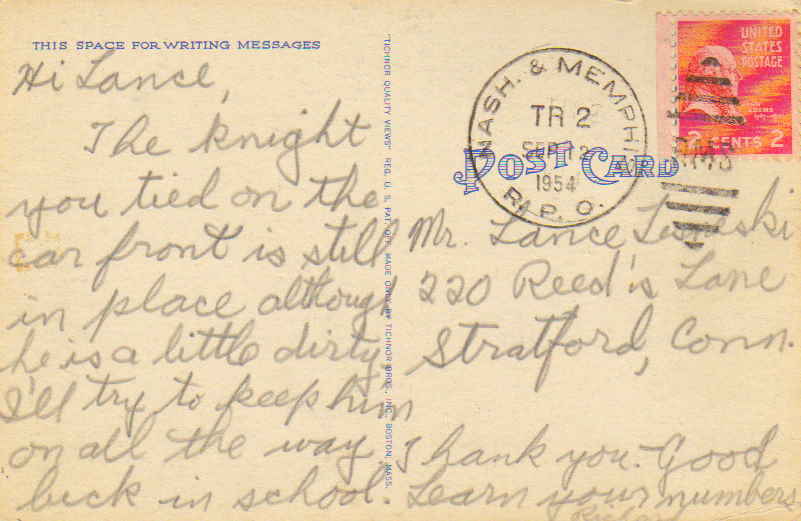 THIS SPACE FOR WRITING MESSAGES
Hi Lance,
The knight
you tied on the
car front is still
in place although
he is a little dirty.
I'll try to keep him
on all the way.
luck in school.
"TICHNOR QUALITY VIEWS" REG. U. S. PAT. OFF. MADE ONLY BY TICHNOR BROS., INC. BOSTON, MASS.
NASH. & MEMPHIS
TR 2
SEP 12
1954
R. P. O.
UNITED
STATES
POSTAGE
2 CENTS 2
POST CARD
Mr. Lance
220 Reed's Lane
Stratford, Conn.
Thank you. Good
Learn your numbers